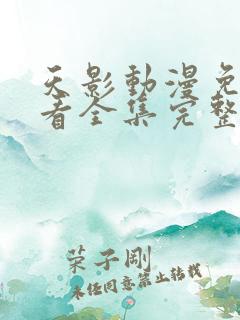 天影動漫免
看全集完整
荣子剛
未经同意禁止转载